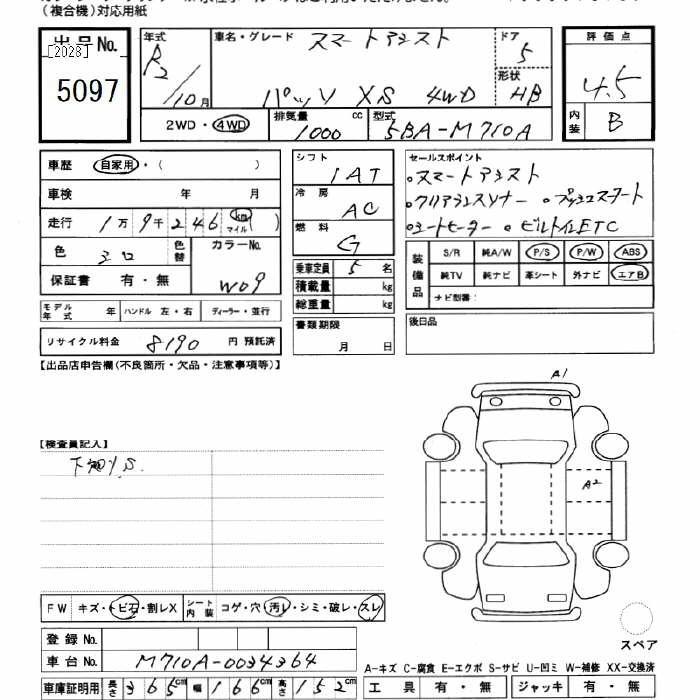 （複合機）対応用紙
出品No.
[2028]
5097
年式
R2/10月
車名・グレード スマートアシスト
パッソ XS 4WD
ドア 5
形状 HB
2WD・4WD
排気量 1000 cc
型式 5BA-M710A
評価点
4.5
内装 B
車歴 自家用・（ ）
車検 年 月
走行 1万9千246 km マイル ( )
色 シロ 色替
カラーNo. W09
保証書 有・無
モデル年式 年 ハンドル 左・右 ディーラー・並行
リサイクル料金 8190 円 預託済
シフト IAT
冷房 AC
燃料 G
乗車定員 5 名
積載量 kg
総重量 kg
書類期限
月 日
セールスポイント
・スマートアシスト
・クリアランスソナー ・プッシュスタート
・シートヒーター ・ビルトインETC
装備品
S/R 純A/W P/S P/W ABS
純TV 純ナビ 革シート 外ナビ エアB
ナビ型番：
後日品
【出品店申告欄（不良箇所・欠品・注意事項等）】
【検査員記入】
A1
A2
FW キズ・トビ石・割レX
シート内装 コゲ・穴・汚レ・シミ・破レ・スレ
登録No.
車台No. M710A-0034364
車庫証明用 長さ 365cm 幅 166cm 高さ 152cm
スペア
A-キズ C-腐食 E-エクボ S-サビ U-凹ミ W-補修 XX-交換済
工具 有・無 ジャッキ 有・無